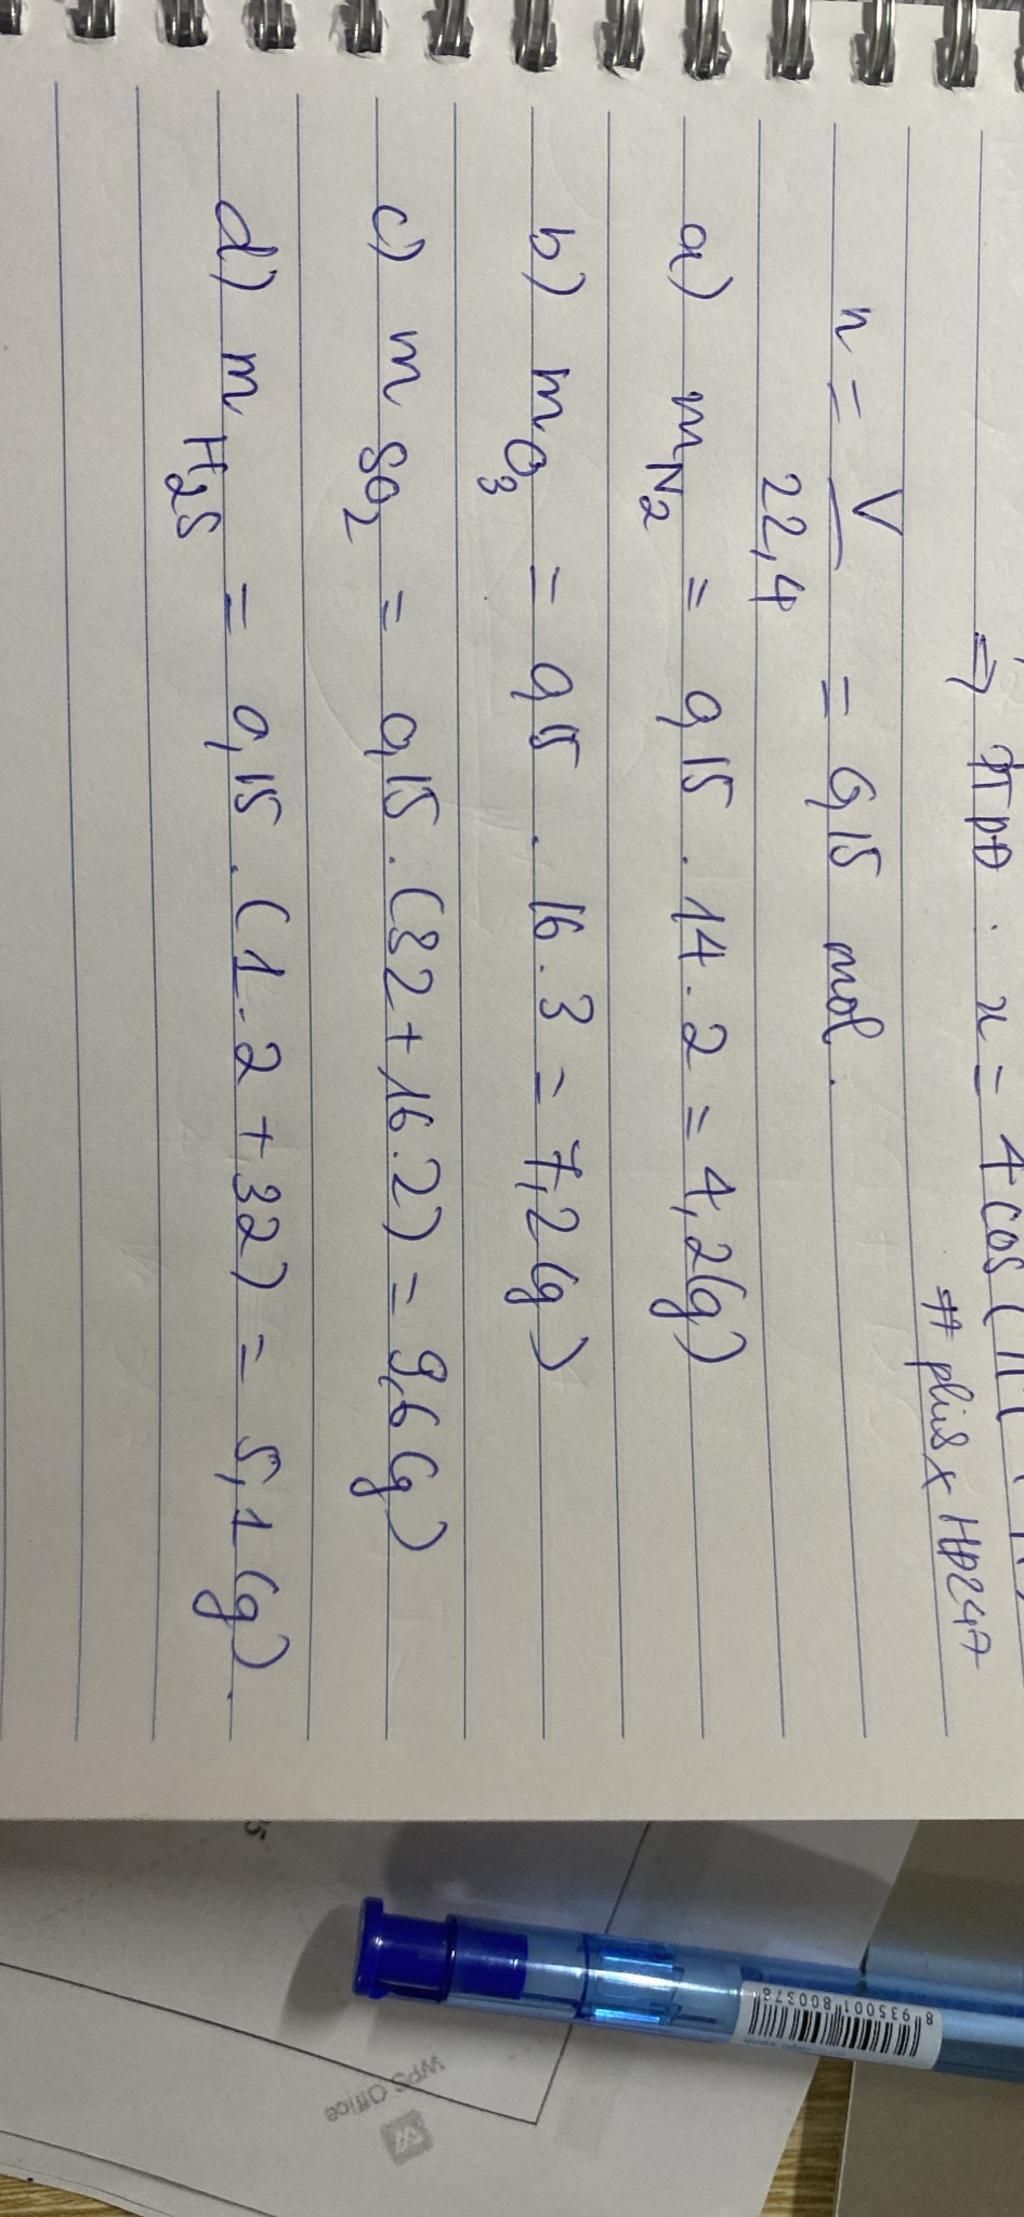 ⇒ ptpđ : x = 4 cos (π (
# plius x HD247
n = V/22,4 = 0,15 mol.
a) mN2 = 0,15 . 14 . 2 = 4,2 (g)
b) mO3 = 0,15 . 16 . 3 = 7,2 (g)
c) mSO2 = 0,15 . (32 + 16 . 2) = 9,6 (g)
d) mH2S = 0,15 . (1 . 2 + 32) = 5,1 (g).
8935001800378
WPS Office